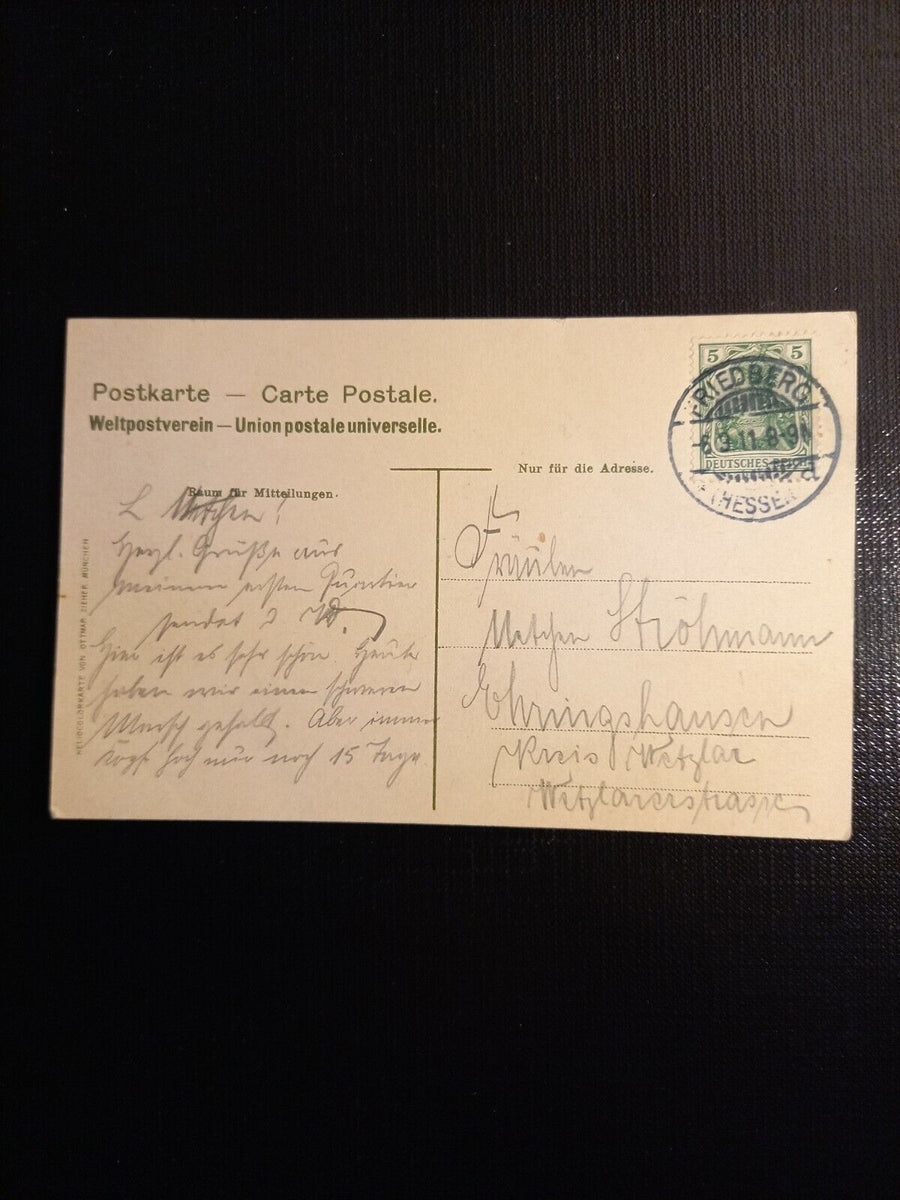 Postkarte — Carte Postale.
Weltpostverein — Union postale universelle.
Raum für Mitteilungen.
Nur für die Adresse.
5 5
DEUTSCHES REICH
FRIEDBERG
3.11.8-9
(HESSEN)
HELIOCOLORKARTE VON OTTMAR ZIEHER MÜNCHEN
L
Herzl. Grüße aus
meinem ersten Quartier
sendet D W.
Hier ist es sehr schön. Heute
haben wir einen schweren
Marsch gehabt. Aber immer
Kopf hoch nur noch 15 Tage
Fräulein
Ströhmann
Ehringshausen
Kreis Wetzlar
Wetzlarerstrasse